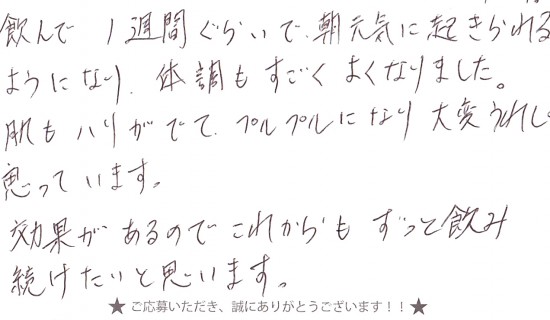 飲んで 1週間ぐらいで、朝元気に起きられる
ようになり、体調もすごくよくなりました。
肌もハリがでて、プルプルになり 大変うれし
思っています。
効果があるのでこれからもずっと飲み
続けたいと思います。
★ ご応募いただき、誠にありがとうございます!!★